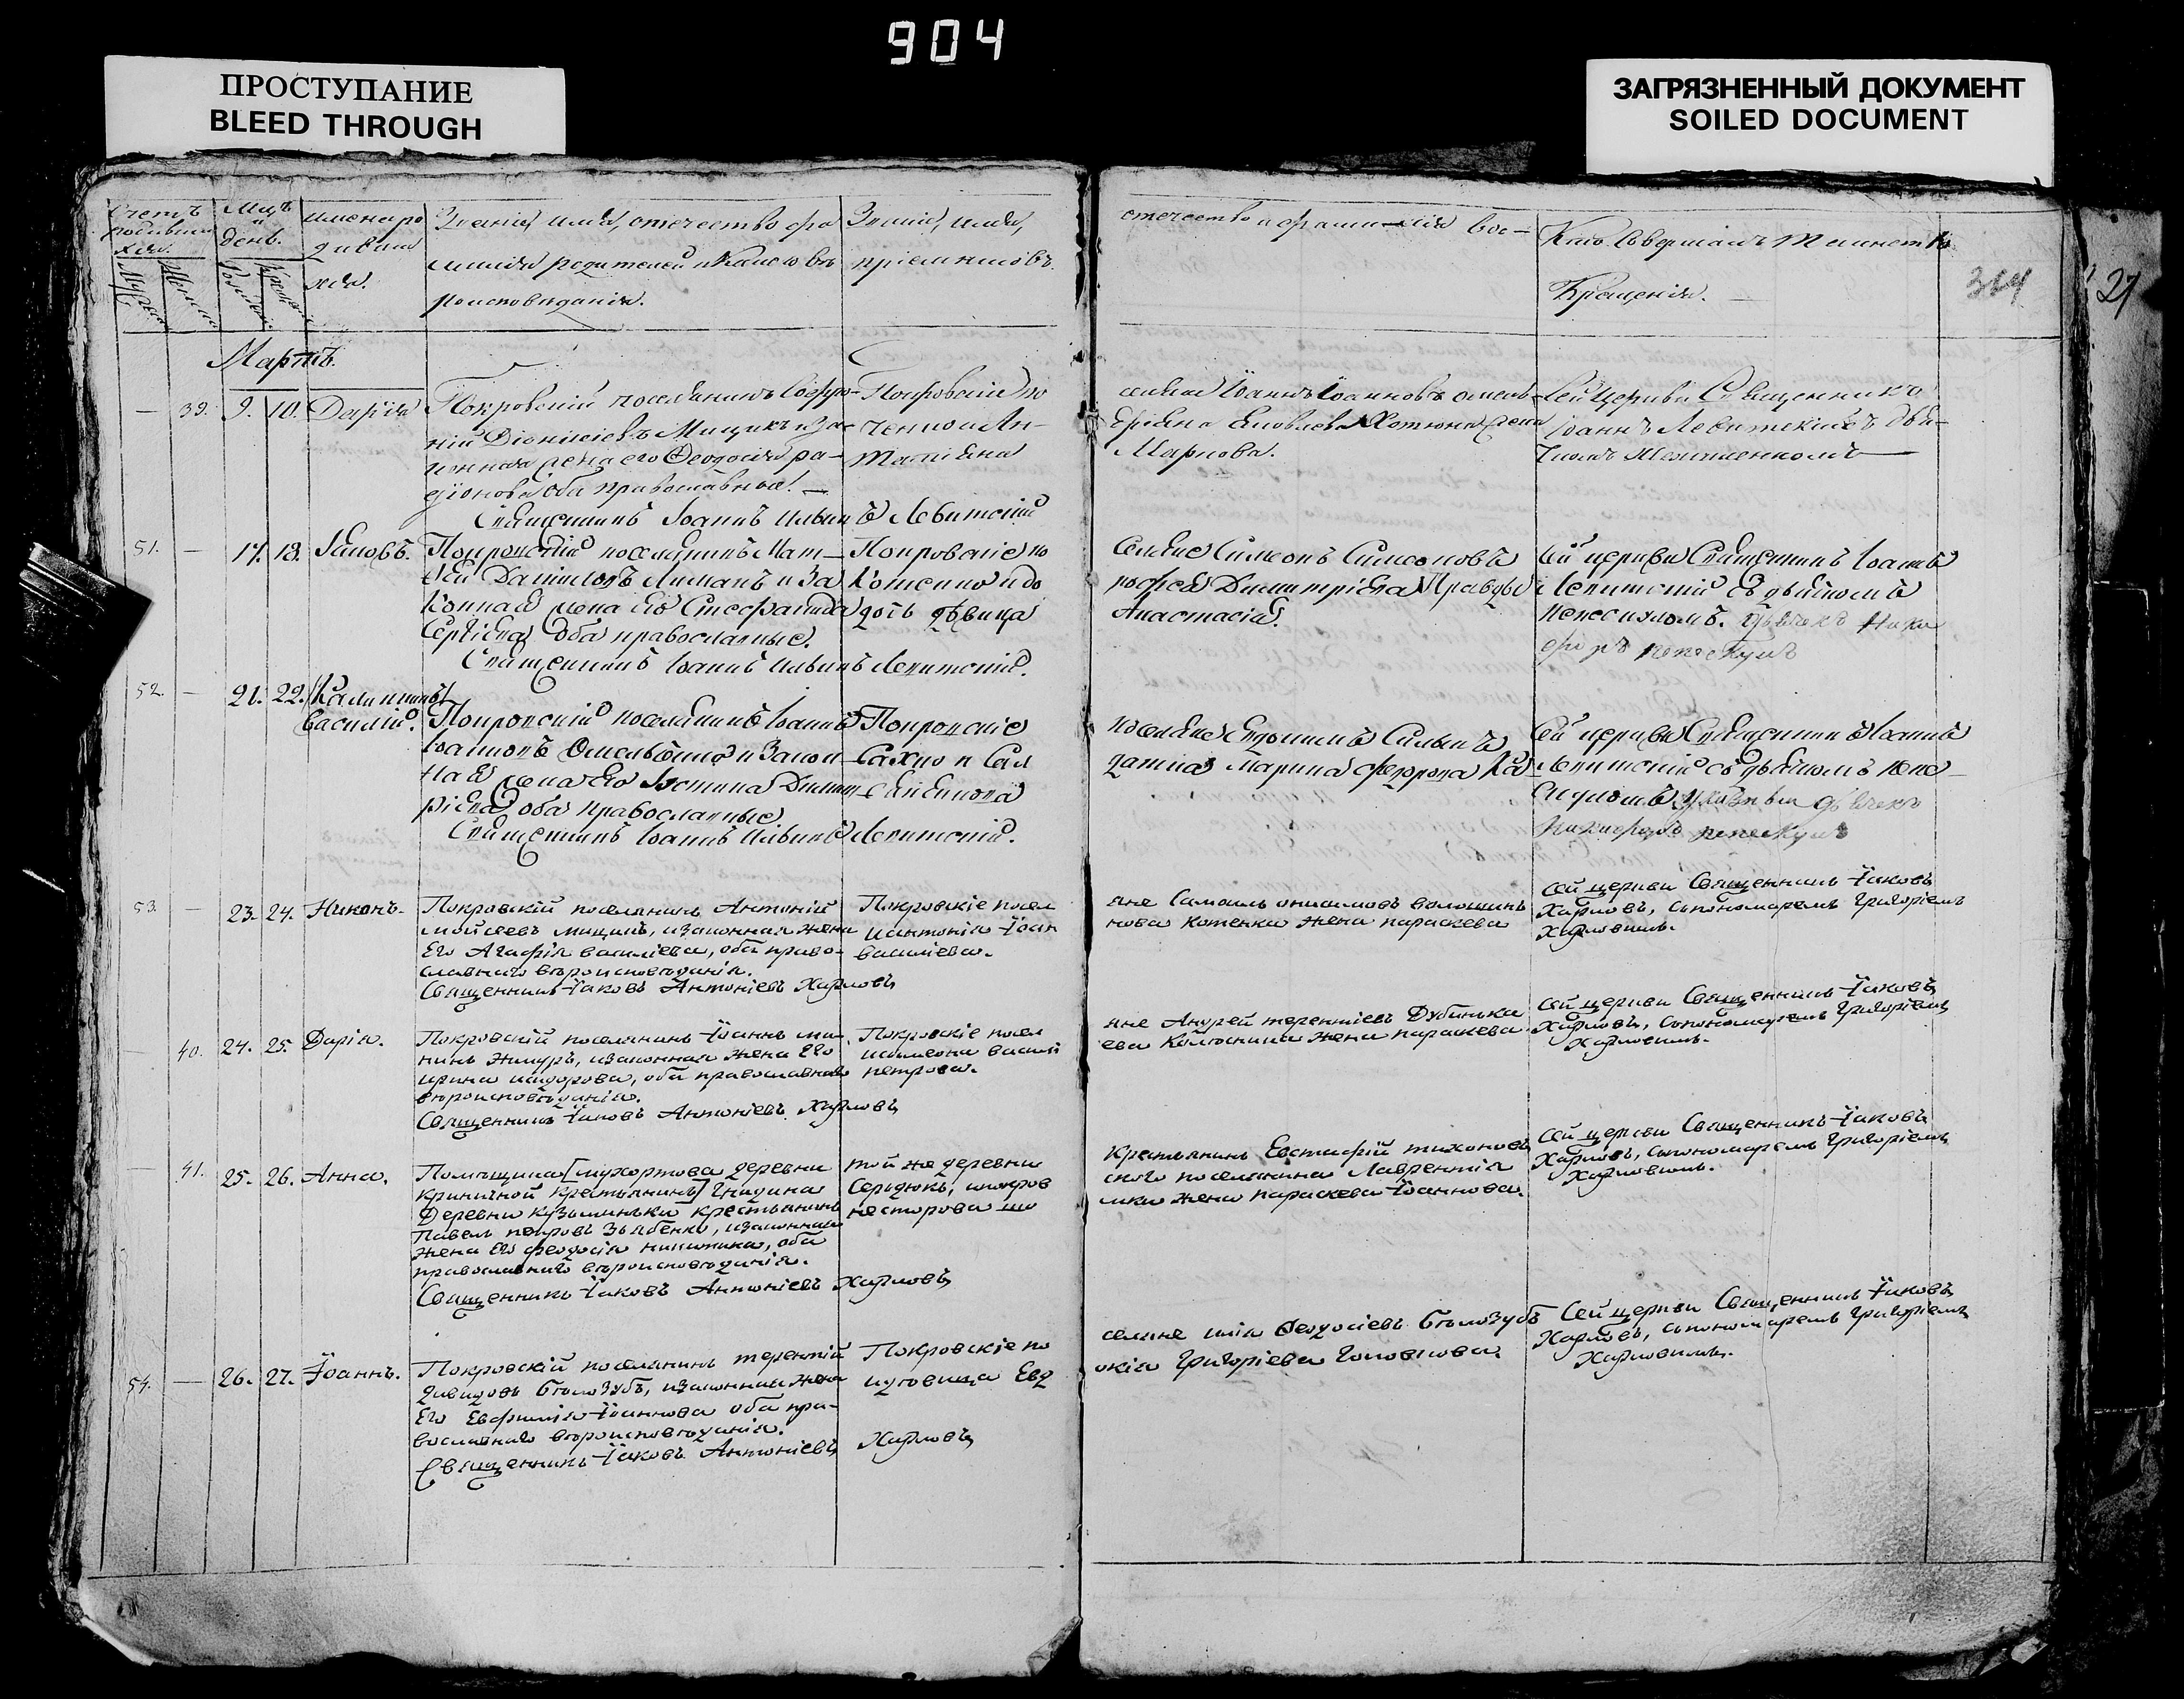 904
ПРОСТУПАНИЕ
BLEED THROUGH
ЗАГРЯЗНЕННЫЙ ДОКУМЕНТ
SOILED DOCUMENT
Счетъ
Мцъ
и
день.
имена ро
дивши
хся.
Званія, имя, отечество фа
милія родителей и какого вѣ
роисповѣданія.
Званіе, имя,
пріемниковъ.
отечество и фамилія вос-
Кто совершалъ таинство
Крещенія.
314
27
Мартъ.
39. 9. 10. Дарія
Покровскій поселянинъ Софро-
ній Діонисіевъ Мищикъ и за-
конная жена его Феодосія ра-
діонова оба православные.
Священникъ Іоаннъ Ильинъ Левитскій
Покровскіе по
Татіана
селяне Іоаннъ Іоанновъ
Яковлева жена
Маркова.
Сей Церкви Священникъ
Іоаннъ Левитскій съ дья-
51. 17. 18. Іаковъ.
Покровскій поселянинъ Мат-
ѳей Даниловъ Лиманъ и за
конная жена его Стефанида
Сергіева оба православные.
Священникъ Іоаннъ Ильинъ Левитскій.
Покровскіе по
Котенко и до
дѣвица
селяне Симеонъ Симоновъ
рофея Димитріева Правды
Анастасія.
Сей церкви Священникъ Іоаннъ
Левитскій съ дьячкомъ
пепескуломъ. дьячекъ Ники
форъ пепескулъ
52. 21. 22. Калинникъ
Василій.
Покровскій поселянинъ Іоаннъ
Іоанновъ Омельченко и закон
ная жена его Іустина Димит
ріева оба православные
Священникъ Іоаннъ Ильинъ Левитскій.
Покровскіе
Сахно и Сал
поселяне Евдокимъ Силинъ
Марина Федорова Ка
Сей церкви Священникъ Іоаннъ
Левитскій съ дьячкомъ пепе
скуломъ дьячекъ
Никифоръ пепескулъ
53. 23. 24. Никонъ.
Покровскій поселянинъ Антоній
Мойсеевъ мищикъ, изаконная жена
Его Агафія василіева, оба право-
славнаго вѣроисповѣданія.
Священникъ Іаковъ Антоніевъ Харловъ
Покровскіе посел
иантонія Іоан
василіева.
яне Самоилъ онисимовъ волошинъ
нова котенка жена параскева
сей церкви Священникъ Іаковъ
Харловъ, съпономаремъ Григоріемъ
Харловимъ.
40. 24. 25. Дарія.
Покровскій поселянинъ Іоаннъ ми-
нинъ Жмуръ, изаконная жена Его
ирина исидорова, оба православнаго
вѣроисповѣданія.
Священникъ Іаковъ Антоніевъ Харловъ
Покровскіе посел
исимеона васил
петрова.
яне Андрей терентіевъ Дубинька
ева Колюсника жена параскева
сей церкви Священникъ Іаковъ
Харловъ, съпономаремъ Григоріемъ
Харловимъ.
41. 25. 26. Анна.
Помѣщика [мухортова деревни
криничной крестьянинъ] Гнидина
Деревни кузьминьки крестьянинъ
Павелъ петровъ Зьябенко, изаконная
жена Его феодосія никитина, оба
православнаго вѣроисповѣданія.
Священникъ Іаковъ Антоніевъ Харловъ
той же деревни
Сердюкъ, ипокров
несторова
крестьянинъ Евстафій тихоновъ
скаго поселянина Лаврентія
жена параскева Іоаннова.
Сей церкви Священникъ Іаковъ
Харловъ, съпономаремъ Григоріемъ
Харловимъ.
54. 26. 27. Іоаннъ.
Покровскій поселянинъ терентій
давидовъ бѣлозубъ, изаконная жена
Его Евфимія Іоаннова оба пра-
вославнаго вѣроисповѣданія.
Священникъ Іаковъ Антоніевъ Харловъ
Покровскіе по
Евд
селяне илія Феодосіевъ бѣлозубъ
окія Григоріева Головкова.
Сей церкви Священникъ Іаковъ
Харловъ, съпономаремъ Григоріемъ
Харловимъ.